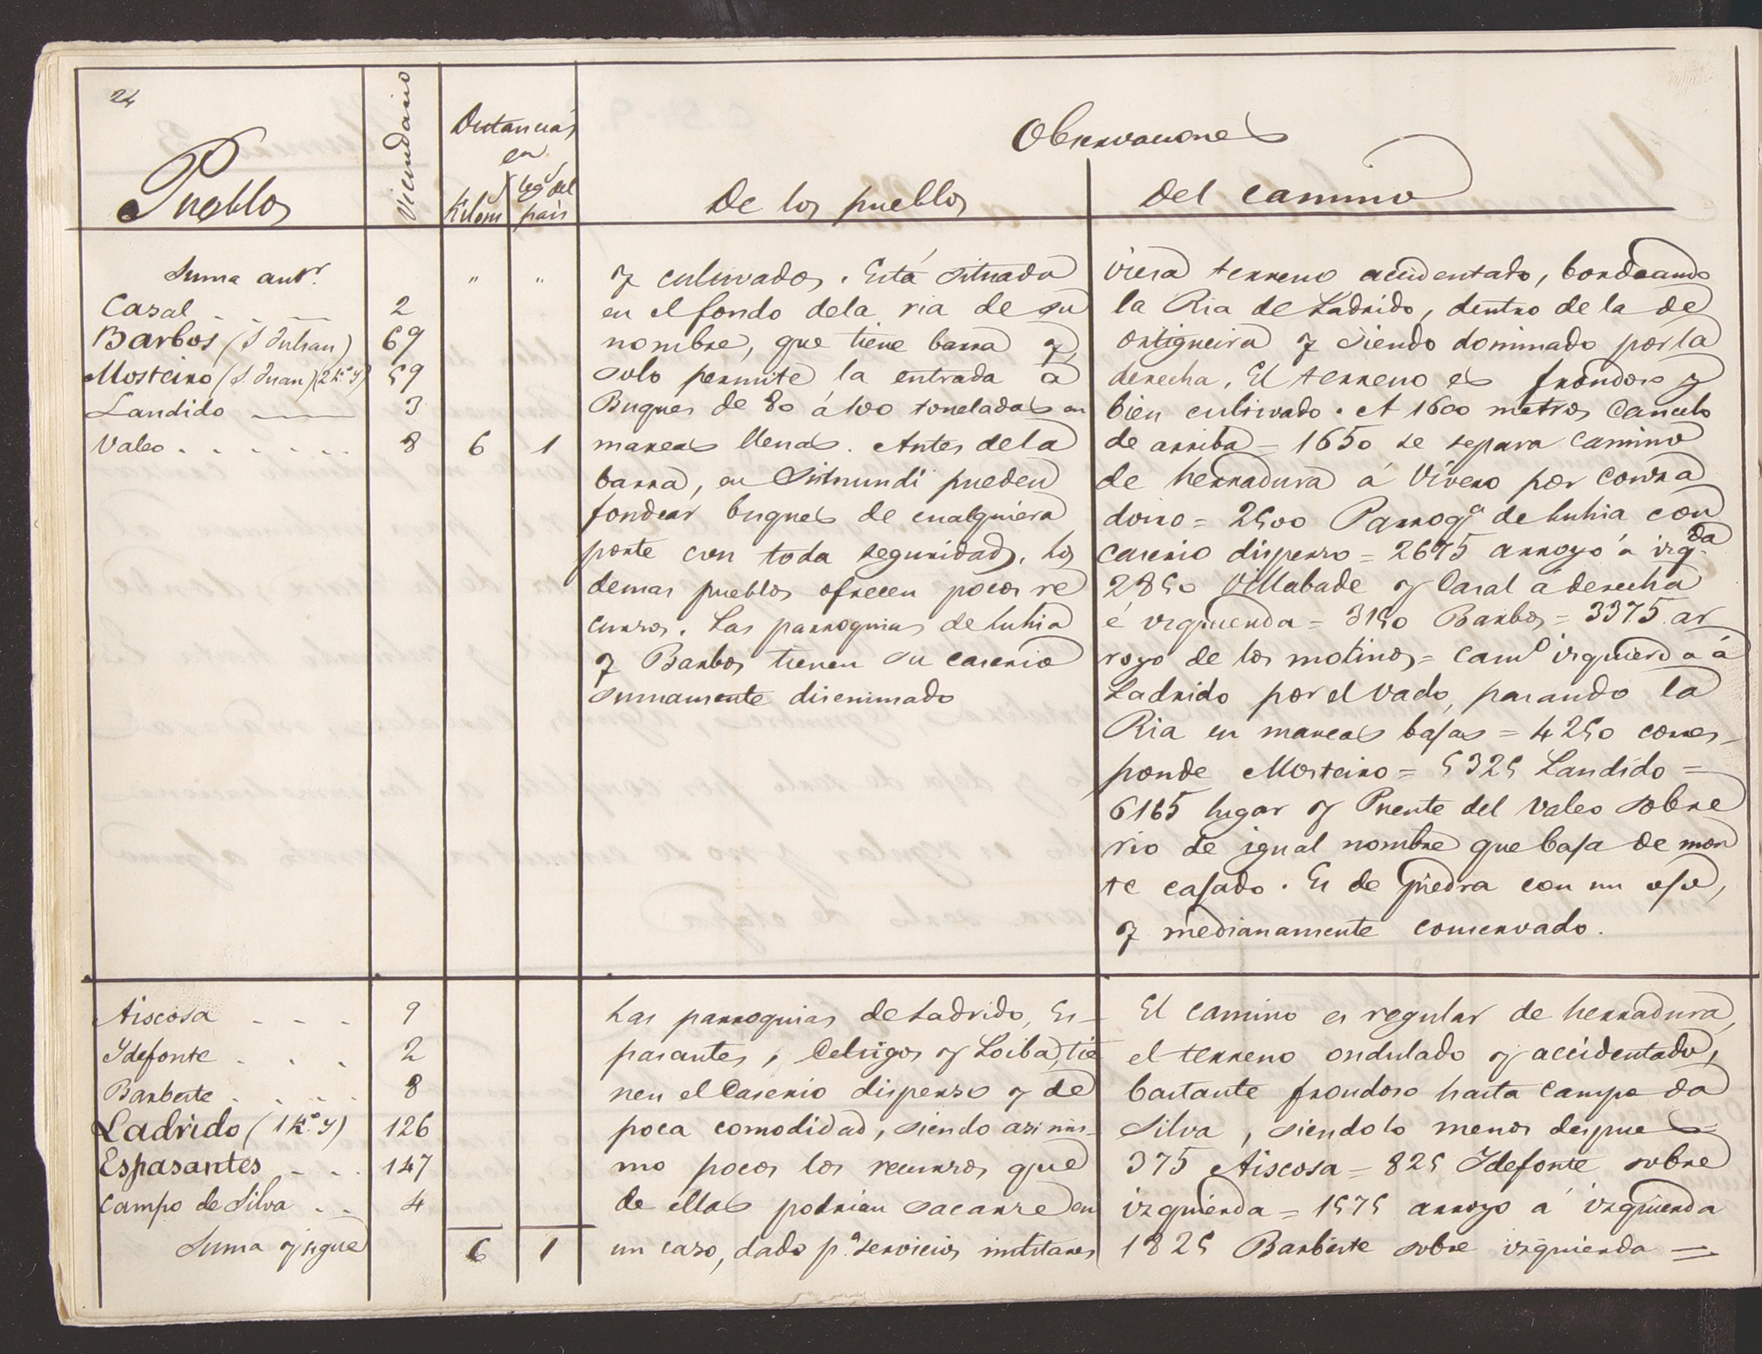 24
Pueblos
Vicendario
Distancias
en
Kilom
leg.s del
pais
Observaciones
De los pueblos
Del camino
Suma antr. " "
Casal 2
Barbos (S Julian) 69
Mosteiro (S. Juan) (2 K.º y) 59
Landido 3
Valeo 8 6 1
y cultivados. Está situada
en el fondo dela ria de su
nombre, que tiene barra y
solo permite la entrada á
Buques de 80 á 100 toneladas en
mareas llenas. Antes dela
barra, en pueden
fondear buques de cualquiera
porte con toda seguridad. Los
demas pueblos ofrecen pocos re
cursos. Las parroquias de Luhia
y Barbos tienen su caserio
sumamente diseminado
viesa terreno accidentado, bordeando
la Ria de Ladrido, dentro de la de
Ortigueira y siendo dominado por la
derecha. El terreno es frondoso y
bien cultivado. A 1600 metros Cancelo
de arriba = 1650 se separa camino
de herradura á Vivero por Couza
doiro = 2500 Parroq.a de Luhia con
caserio disperso = 2695 arroyo á izq.da
2850 Villabade y Casal á derecha
é izquierda = 3150 Barbos = 3375 ar
royo de los molinos = cam.o izquierda á
Ladrido por el vado, pasando la
Ria en mareas bajas = 4250 corres-
ponde Mosteiro = 5325 Landido =
6165 lugar y Puente del Valeo sobre
rio de igual nombre que baja de mon
te cajado. Es de piedra con un ojo,
y medianamente conservado.
Aiscosa 9
Ydefonte 2
Barbeste 8
Ladrido (1 K.º y) 126
Espasantes 147
Campo de Silva 4
Suma y sigue 6 1
Las parroquias de Ladrido, Es-
pasantes, Celtigos y Loiba, tie
nen el Caserio disperso y de
poca comodidad, siendo asi mis-
mo pocos los recursos que
de ellas podrian sacarse en
un caso, dado p.a servicios militares
El camino es regular de herradura,
el terreno ondulado y accidentado,
bastante frondoso hasta Campo da
Silva, siendolo menos despues =
375 Aiscosa = 825 Ydefonte sobre
izquierda = 1575 arroyo á izquierda
1825 Barbeste sobre izquierda =